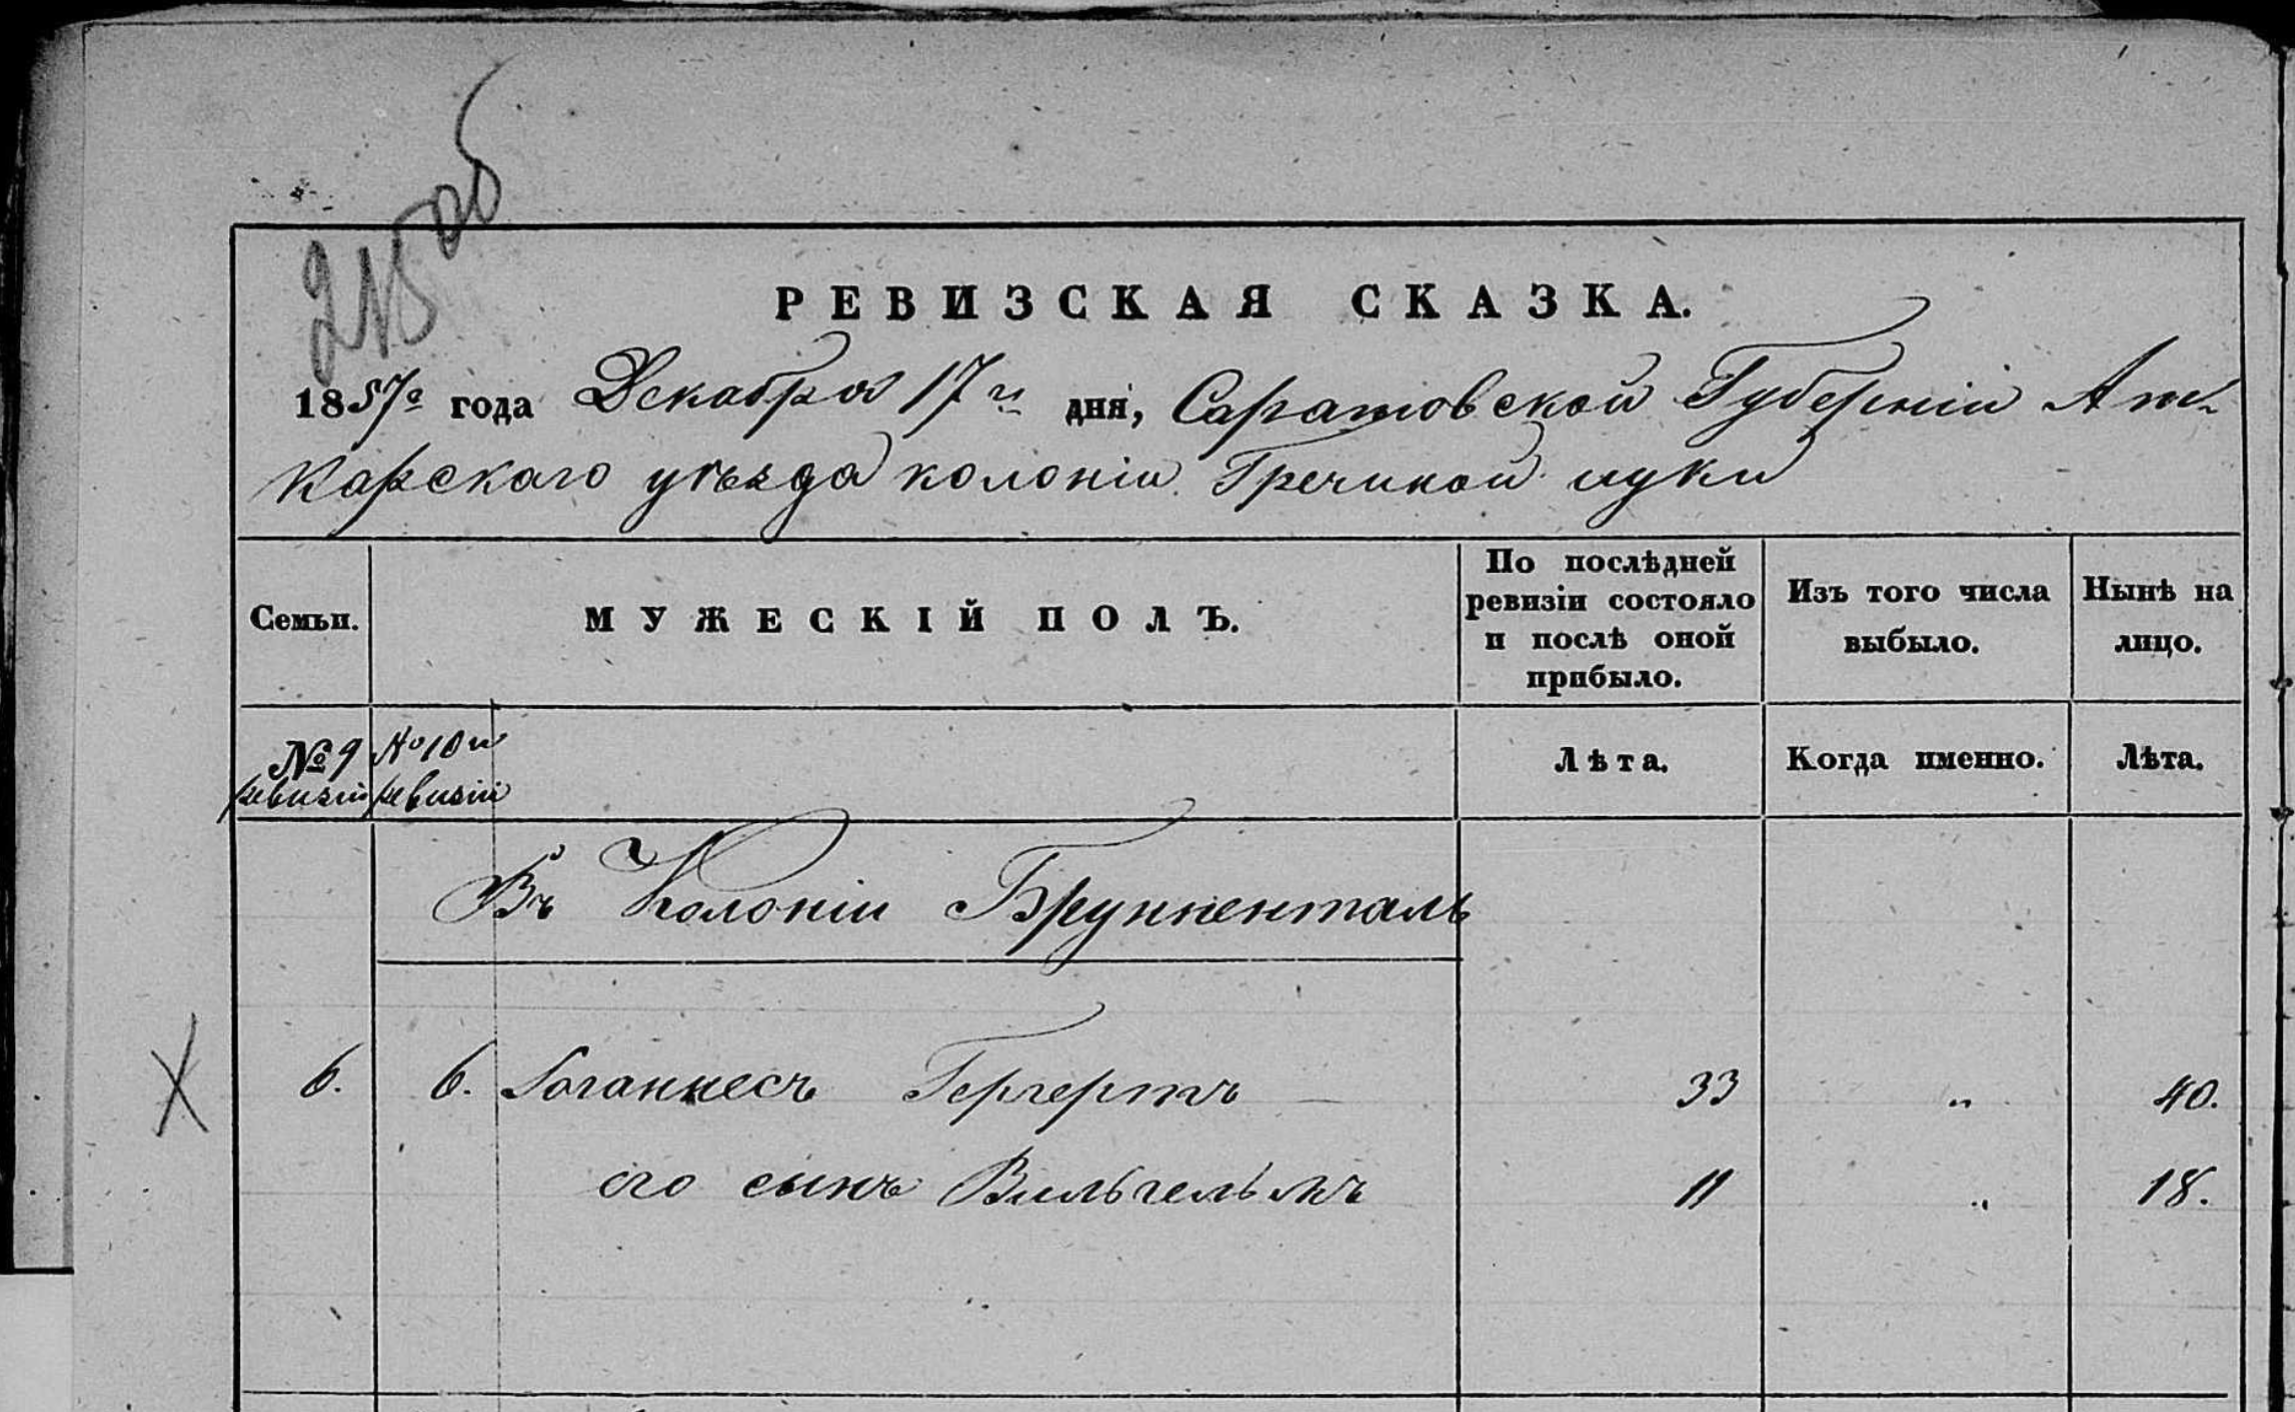 215 об
РЕВИЗСКАЯ СКАЗКА.
1857го года Декабря 17го дня, Саратовской Губернiи Ат-
карскаго уѣзда колонiи Гречиной луки
Семьи.
МУЖЕСКIЙ ПОЛЪ.
По послѣдней
ревизiи состояло
и послѣ оной
прибыло.
Изъ того числа
выбыло.
Нынѣ на
лицо.
№ 9
ревизiи
№ 10й
ревизiи
Лѣта.
Когда именно.
Лѣта.
Въ Колонiи Брунненталь
6. 6. Iоганнесъ Гергертъ 33 „ 40.
его сынъ Вильгельмъ 11 „ 18.